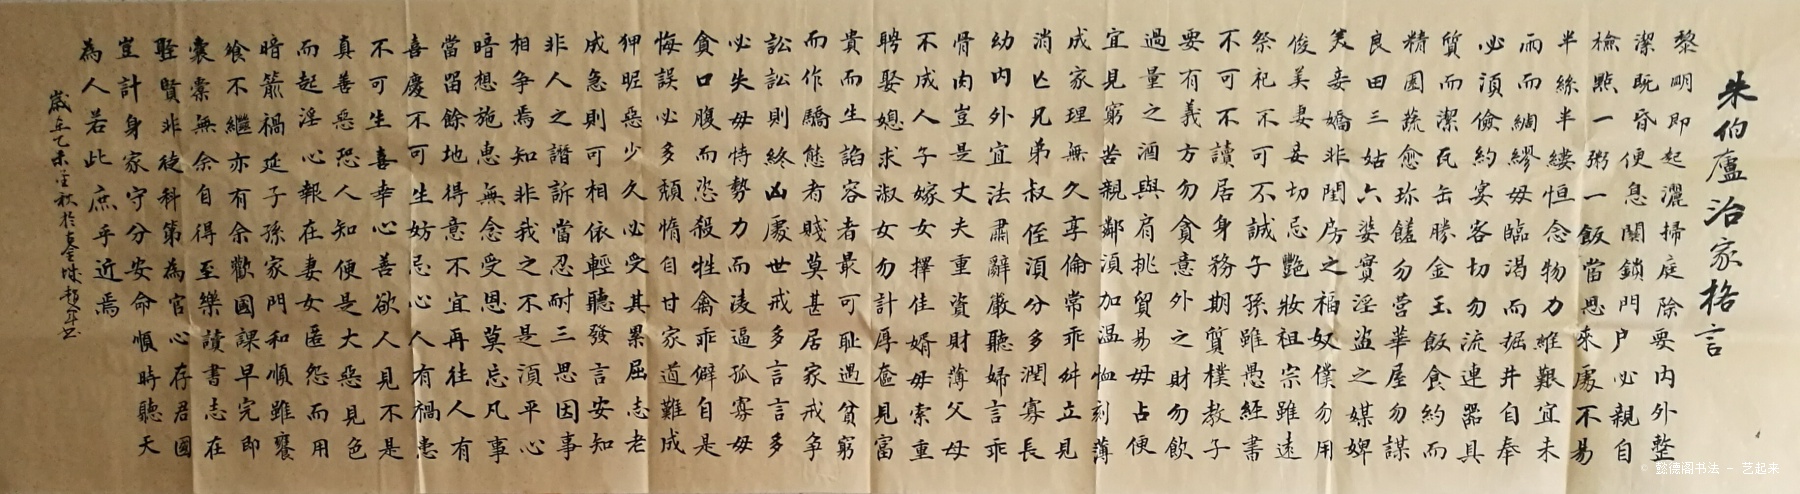 朱伯廬治家格言
黎明即起灑掃庭除要内外整
潔既昏便息關鎖門户必親自
檢點一粥一飯當思來處不易
半絲半縷恒念物力維艱宜未
雨而綢繆毋臨渴而掘井自奉
必須儉約宴客切勿流連器具
質而潔瓦缶勝金玉飯食約而
精園蔬愈珍饈勿營華屋勿謀
良田三姑六婆實淫盜之媒婢
美妾嬌非閨房之福奴僕勿用
俊美妻妾切忌艷妝祖宗雖遠
祭祀不可不誠子孫雖愚經書
不可不讀居身務期質樸教子
要有義方勿貪意外之財勿飲
過量之酒與肩挑貿易毋占便
宜見窮苦親鄰須加温恤刻薄
成家理無久享倫常乖舛立見
消亡兄弟叔侄須分多潤寡長
幼内外宜法肅辭嚴聽婦言乖
骨肉豈是丈夫重資財薄父母
不成人子嫁女擇佳婿毋索重
聘娶媳求淑女勿計厚奩見富
貴而生諂容者最可恥遇貧窮
而作驕態者賤莫甚居家戒爭
訟訟則終凶處世戒多言言多
必失毋恃勢力而凌逼孤寡毋
貪口腹而恣殺牲禽乖僻自是
悔誤必多頹惰自甘家道難成
狎昵惡少久必受其累屈志老
成急則可相依輕聽發言安知
非人之譖訴當忍耐三思因事
相爭焉知非我之不是須平心
暗想施惠無念受恩莫忘凡事
當留餘地得意不宜再往人有
喜慶不可生妒忌心人有禍患
不可生喜幸心善欲人見不是
真善惡恐人知便是大惡見色
而起淫心報在妻女匿怨而用
暗箭禍延子孫家門和順雖饔
飧不繼亦有余歡國課早完即
囊橐無余自得至樂讀書志在
聖賢非徒科第為官心存君國
豈計身家守分安命順時聽天
為人若此庶乎近焉
歲在乙未金秋於
© 懿德阁书法 - 艺起来